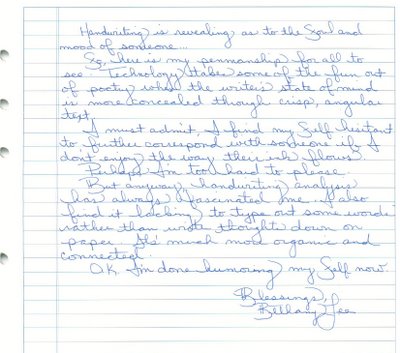 Handwriting is revealing as to the Soul and
mood of someone...
So, here is my penmanship for all to
see. Technology takes some of the fun out
of poetry when the writer's state of mind
is more concealed though crisp, angular
text.
I must admit, I find my Self hesitant
to further correspond with someone if I
don't enjoy the way their ink flows.
Perhaps I'm too hard to please.
But anyway, handwriting analysis
has always fascinated me. I also
find it lacking to type out some words
rather than wrote thoughts down on
paper. It's much more organic and
connected.
O.K. I'm done humoring my Self now.
Blessings,
Bethany Lee